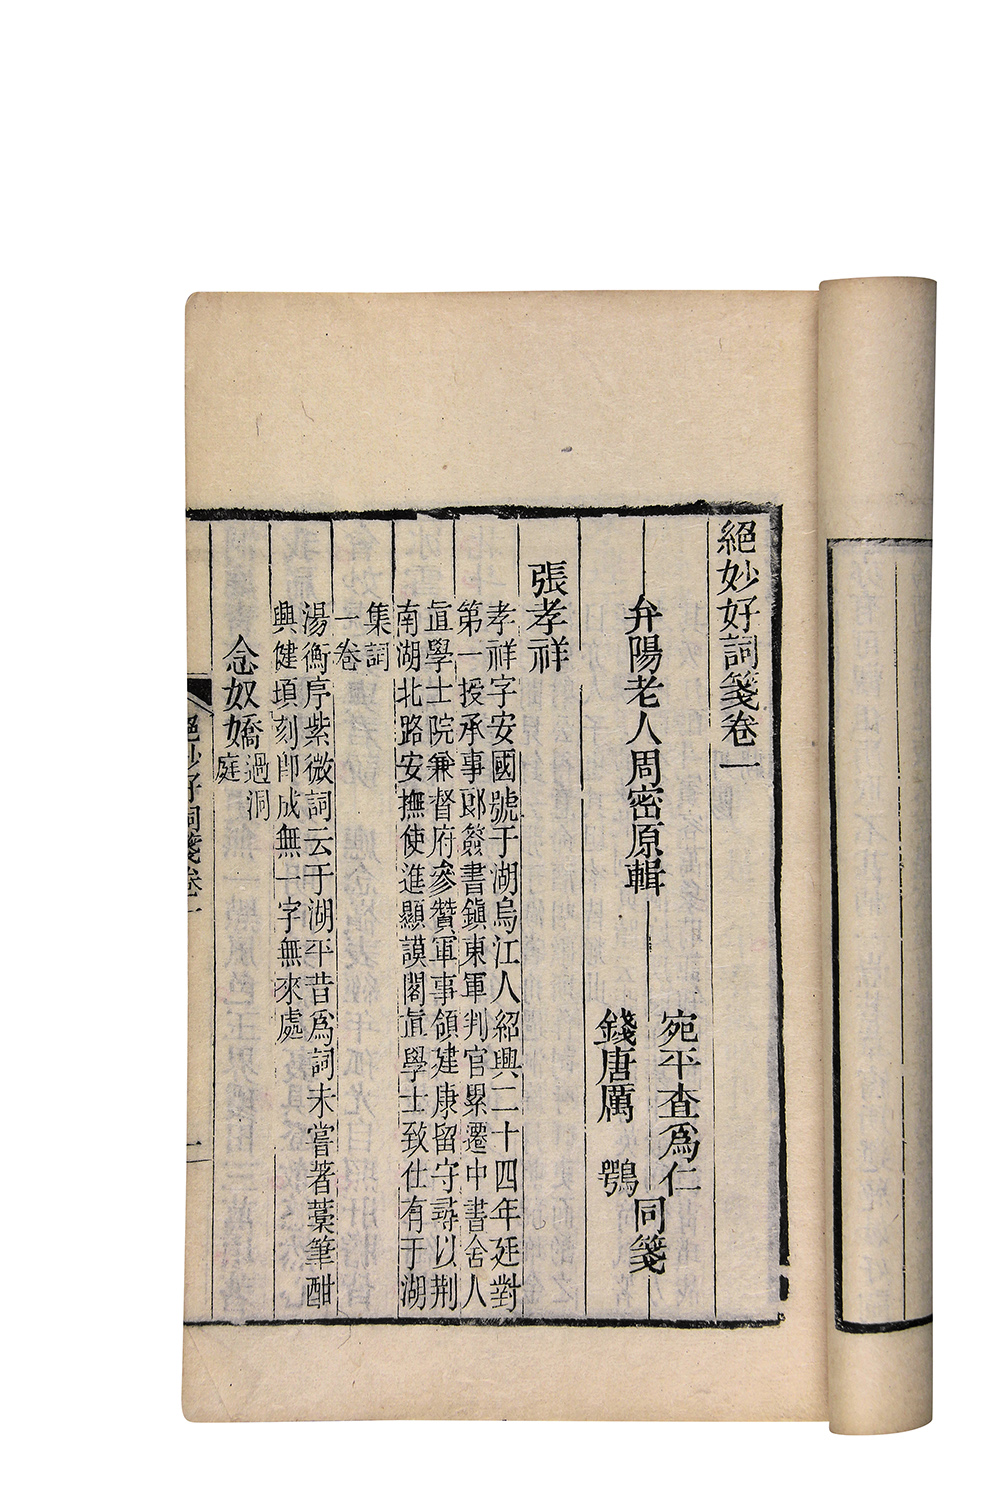 絕妙好詞箋卷一
弁陽老人周密原輯
宛平查爲仁
錢唐厲鶚
同箋
張孝祥
孝祥字安國號于湖烏江人紹興二十四年廷對
第一授承事郎簽書鎮東軍判官累遷中書舍人
直學士院兼督府參贊軍事領建康留守尋以荆
南湖北路安撫使進顯謨閣直學士致仕有于湖
集詞
一卷
湯衡序紫微詞云于湖平昔爲詞未嘗著藁筆酣
興健頃刻即成無一字無來處
念奴嬌過洞
庭
絕妙好詞箋卷一
一